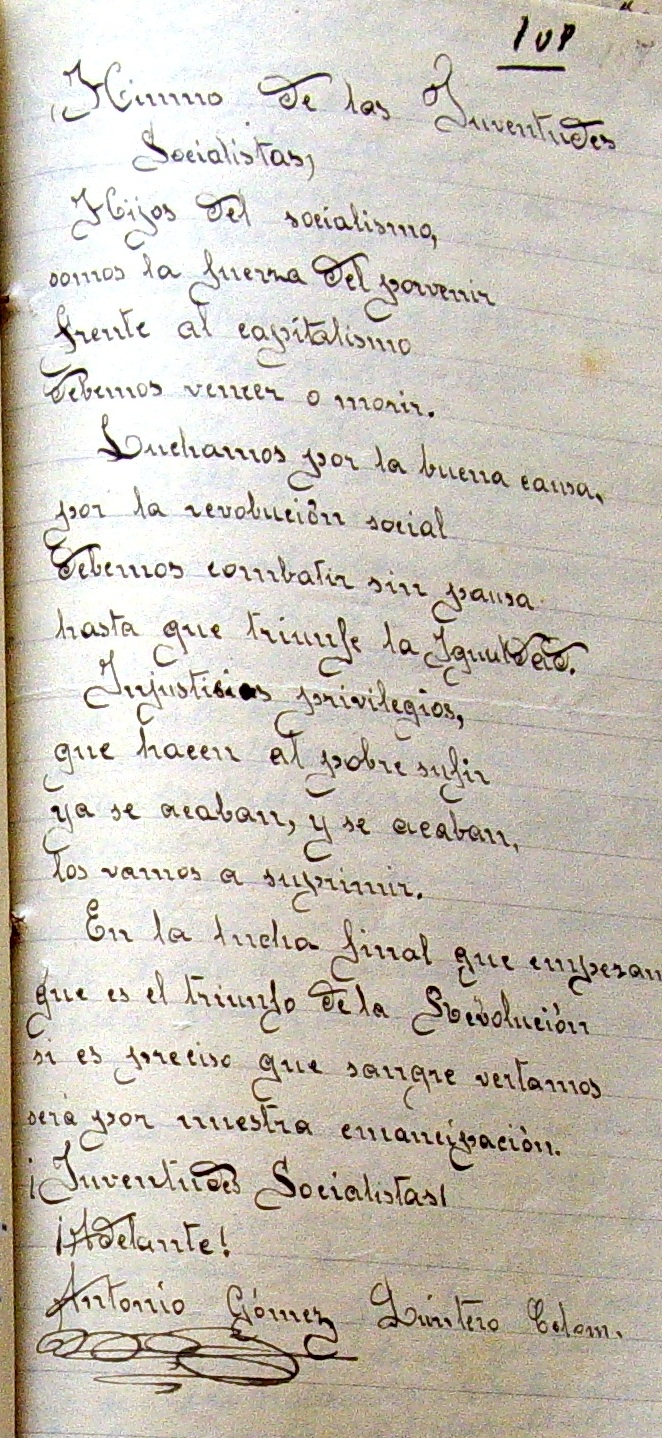 107
Himno de las Juventudes
Socialistas,
Hijos del socialismo,
somos la fuerza del porvenir
frente al capitalismo
debemos vencer o morir.
Luchamos por la buena causa,
por la revolución social
debemos combatir sin pausa
hasta que triunfe la Igualdad.
Injusticias privilegios,
que hacen al pobre sufir
ya se acaban, y se acaban,
los vamos a suprimir.
En la lucha final que empezan
que es el triunfo de la Revolución
si es preciso que sangre vertamos
será por nuestra emancipación.
¡Juventudes Socialistas!
¡Adelante!
Antonio Gómez Quintero Colom.